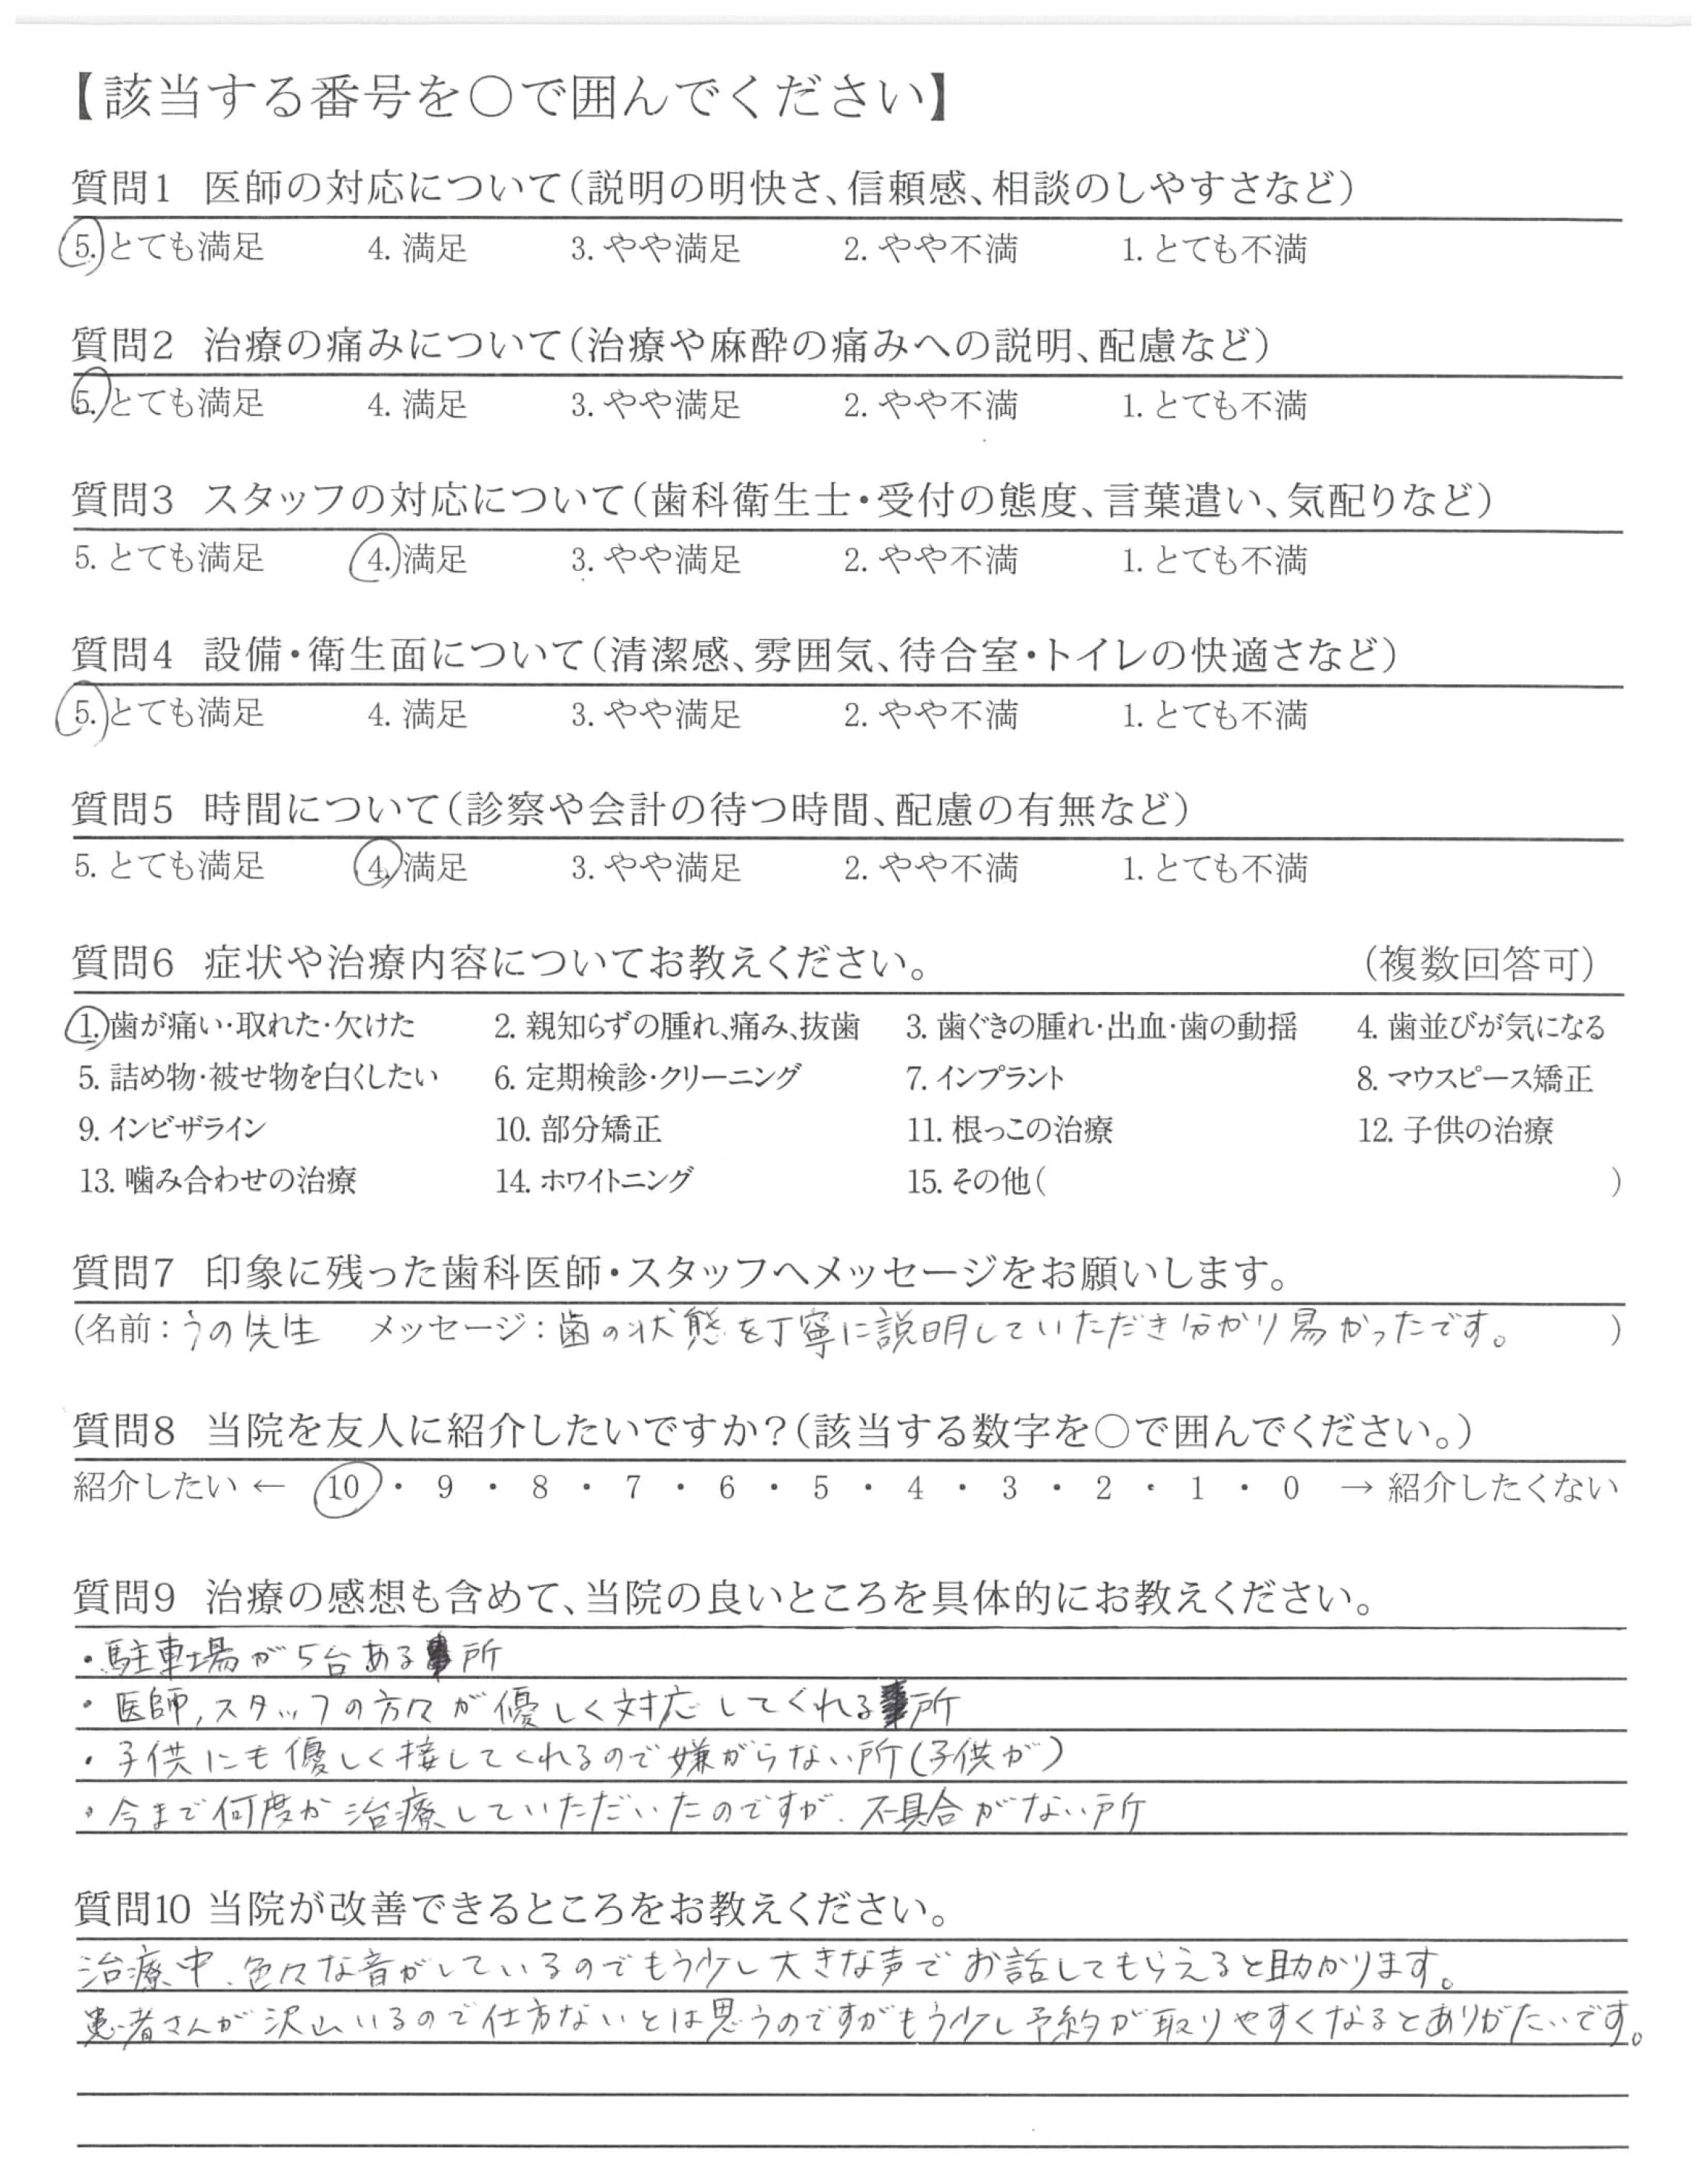 【該当する番号を○で囲んでください】
質問1 医師の対応について(説明の明快さ、信頼感、相談のしやすさなど)
5. とても満足 4. 満足 3. やや満足 2. やや不満 1. とても不満
質問2 治療の痛みについて(治療や麻酔の痛みへの説明、配慮など)
5. とても満足 4. 満足 3. やや満足 2. やや不満 1. とても不満
質問3 スタッフの対応について(歯科衛生士・受付の態度、言葉遣い、気配りなど)
5. とても満足 4. 満足 3. やや満足 2. やや不満 1. とても不満
質問4 設備・衛生面について(清潔感、雰囲気、待合室・トイレの快適さなど)
5. とても満足 4. 満足 3. やや満足 2. やや不満 1. とても不満
質問5 時間について(診察や会計の待つ時間、配慮の有無など)
5. とても満足 4. 満足 3. やや満足 2. やや不満 1. とても不満
質問6 症状や治療内容についてお教えください。 (複数回答可)
1. 歯が痛い・取れた・欠けた 2. 親知らずの腫れ、痛み、抜歯 3. 歯ぐきの腫れ・出血・歯の動揺 4. 歯並びが気になる
5. 詰め物・被せ物を白くしたい 6. 定期検診・クリーニング 7. インプラント 8. マウスピース矯正
9. インビザライン 10. 部分矯正 11. 根っこの治療 12. 子供の治療
13. 噛み合わせの治療 14. ホワイトニング 15. その他( )
質問7 印象に残った歯科医師・スタッフへメッセージをお願いします。
(名前:うの先生 メッセージ:歯の状態を丁寧に説明していただき分かり易かったです。 )
質問8 当院を友人に紹介したいですか?(該当する数字を○で囲んでください。)
紹介したい ← 10 ・ 9 ・ 8 ・ 7 ・ 6 ・ 5 ・ 4 ・ 3 ・ 2 ・ 1 ・ 0 → 紹介したくない
質問9 治療の感想も含めて、当院の良いところを具体的にお教えください。
・駐車場が5台ある所
・医師,スタッフの方々が優しく対応してくれる所
・子供にも優しく接してくれるので嫌がらない所(子供が)
・今まで何度か治療していただいたのですが、不具合がない所
質問10 当院が改善できるところをお教えください。
治療中、色々な音がしているのでもう少し大きな声でお話してもらえると助かります。
患者さんが沢山いるので仕方ないとは思うのですがもう少し予約が取りやすくなるとありがたいです。